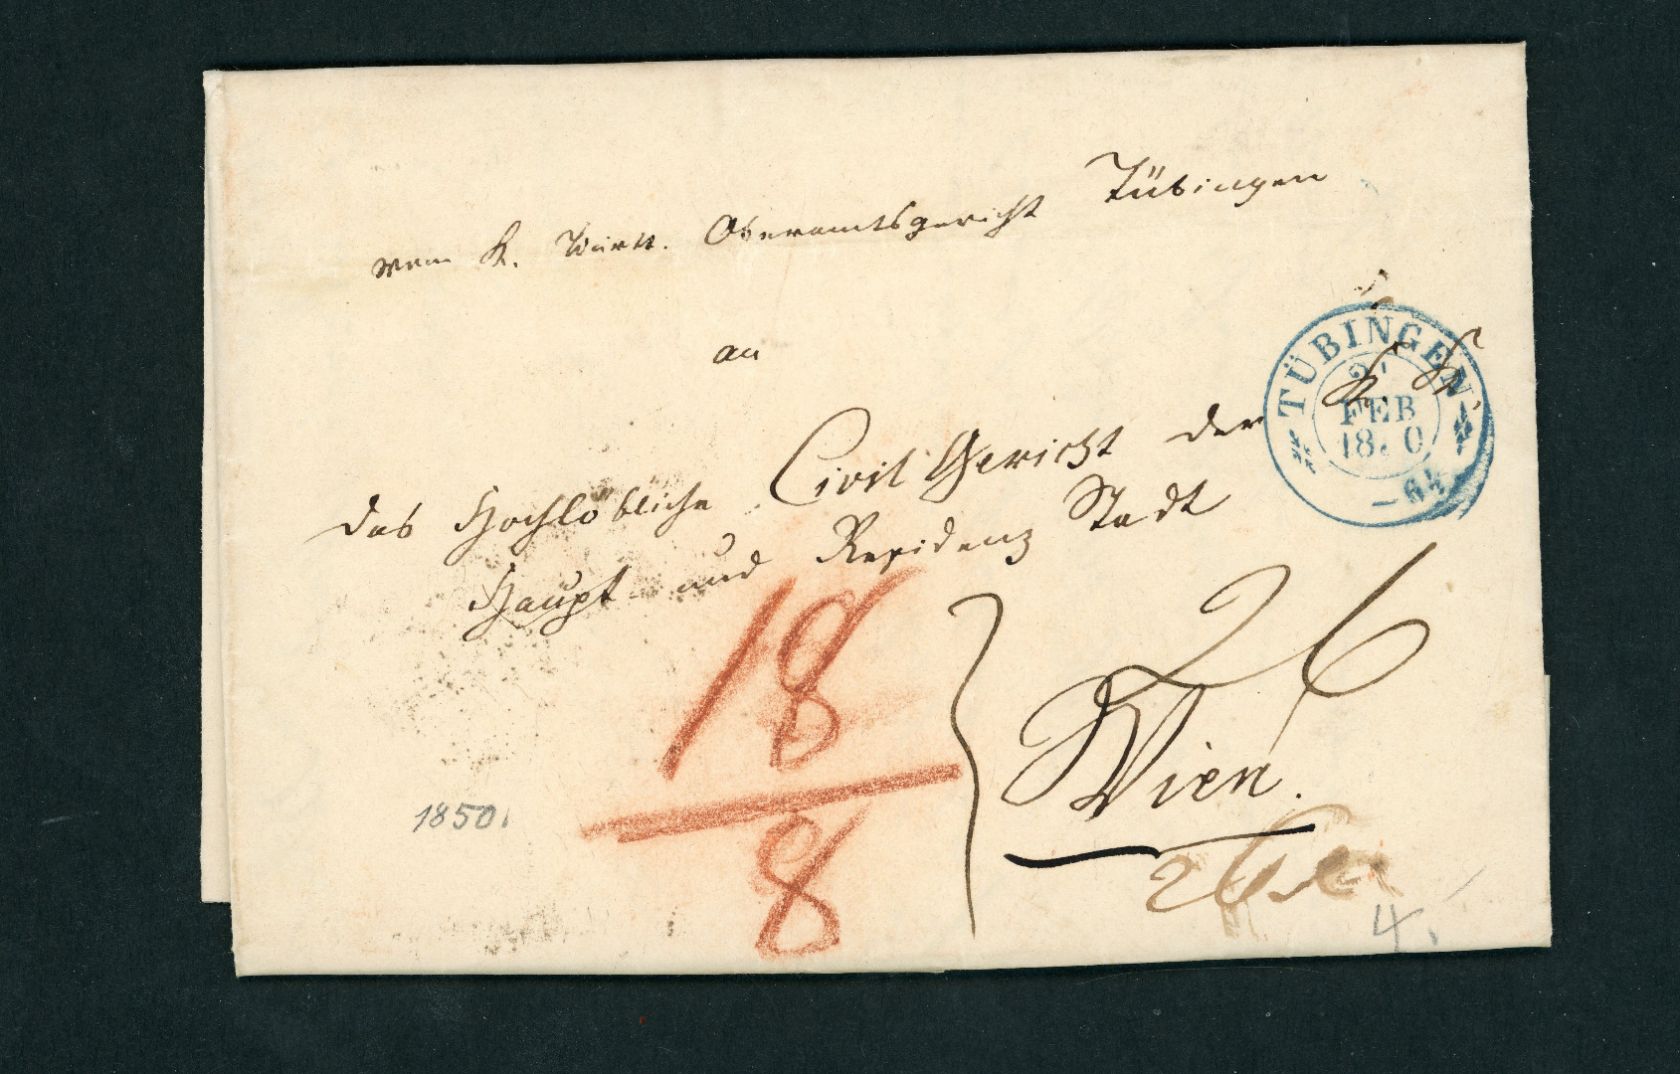 vom K. Württ. Oberamtsgericht Tübingen
an
das Hochlöbliche Civil Gericht der K. K.
Haupt und Residenz Stadt
Wien.
TÜBINGEN
FEB
18 0
26
18
8
8
1850.
4.